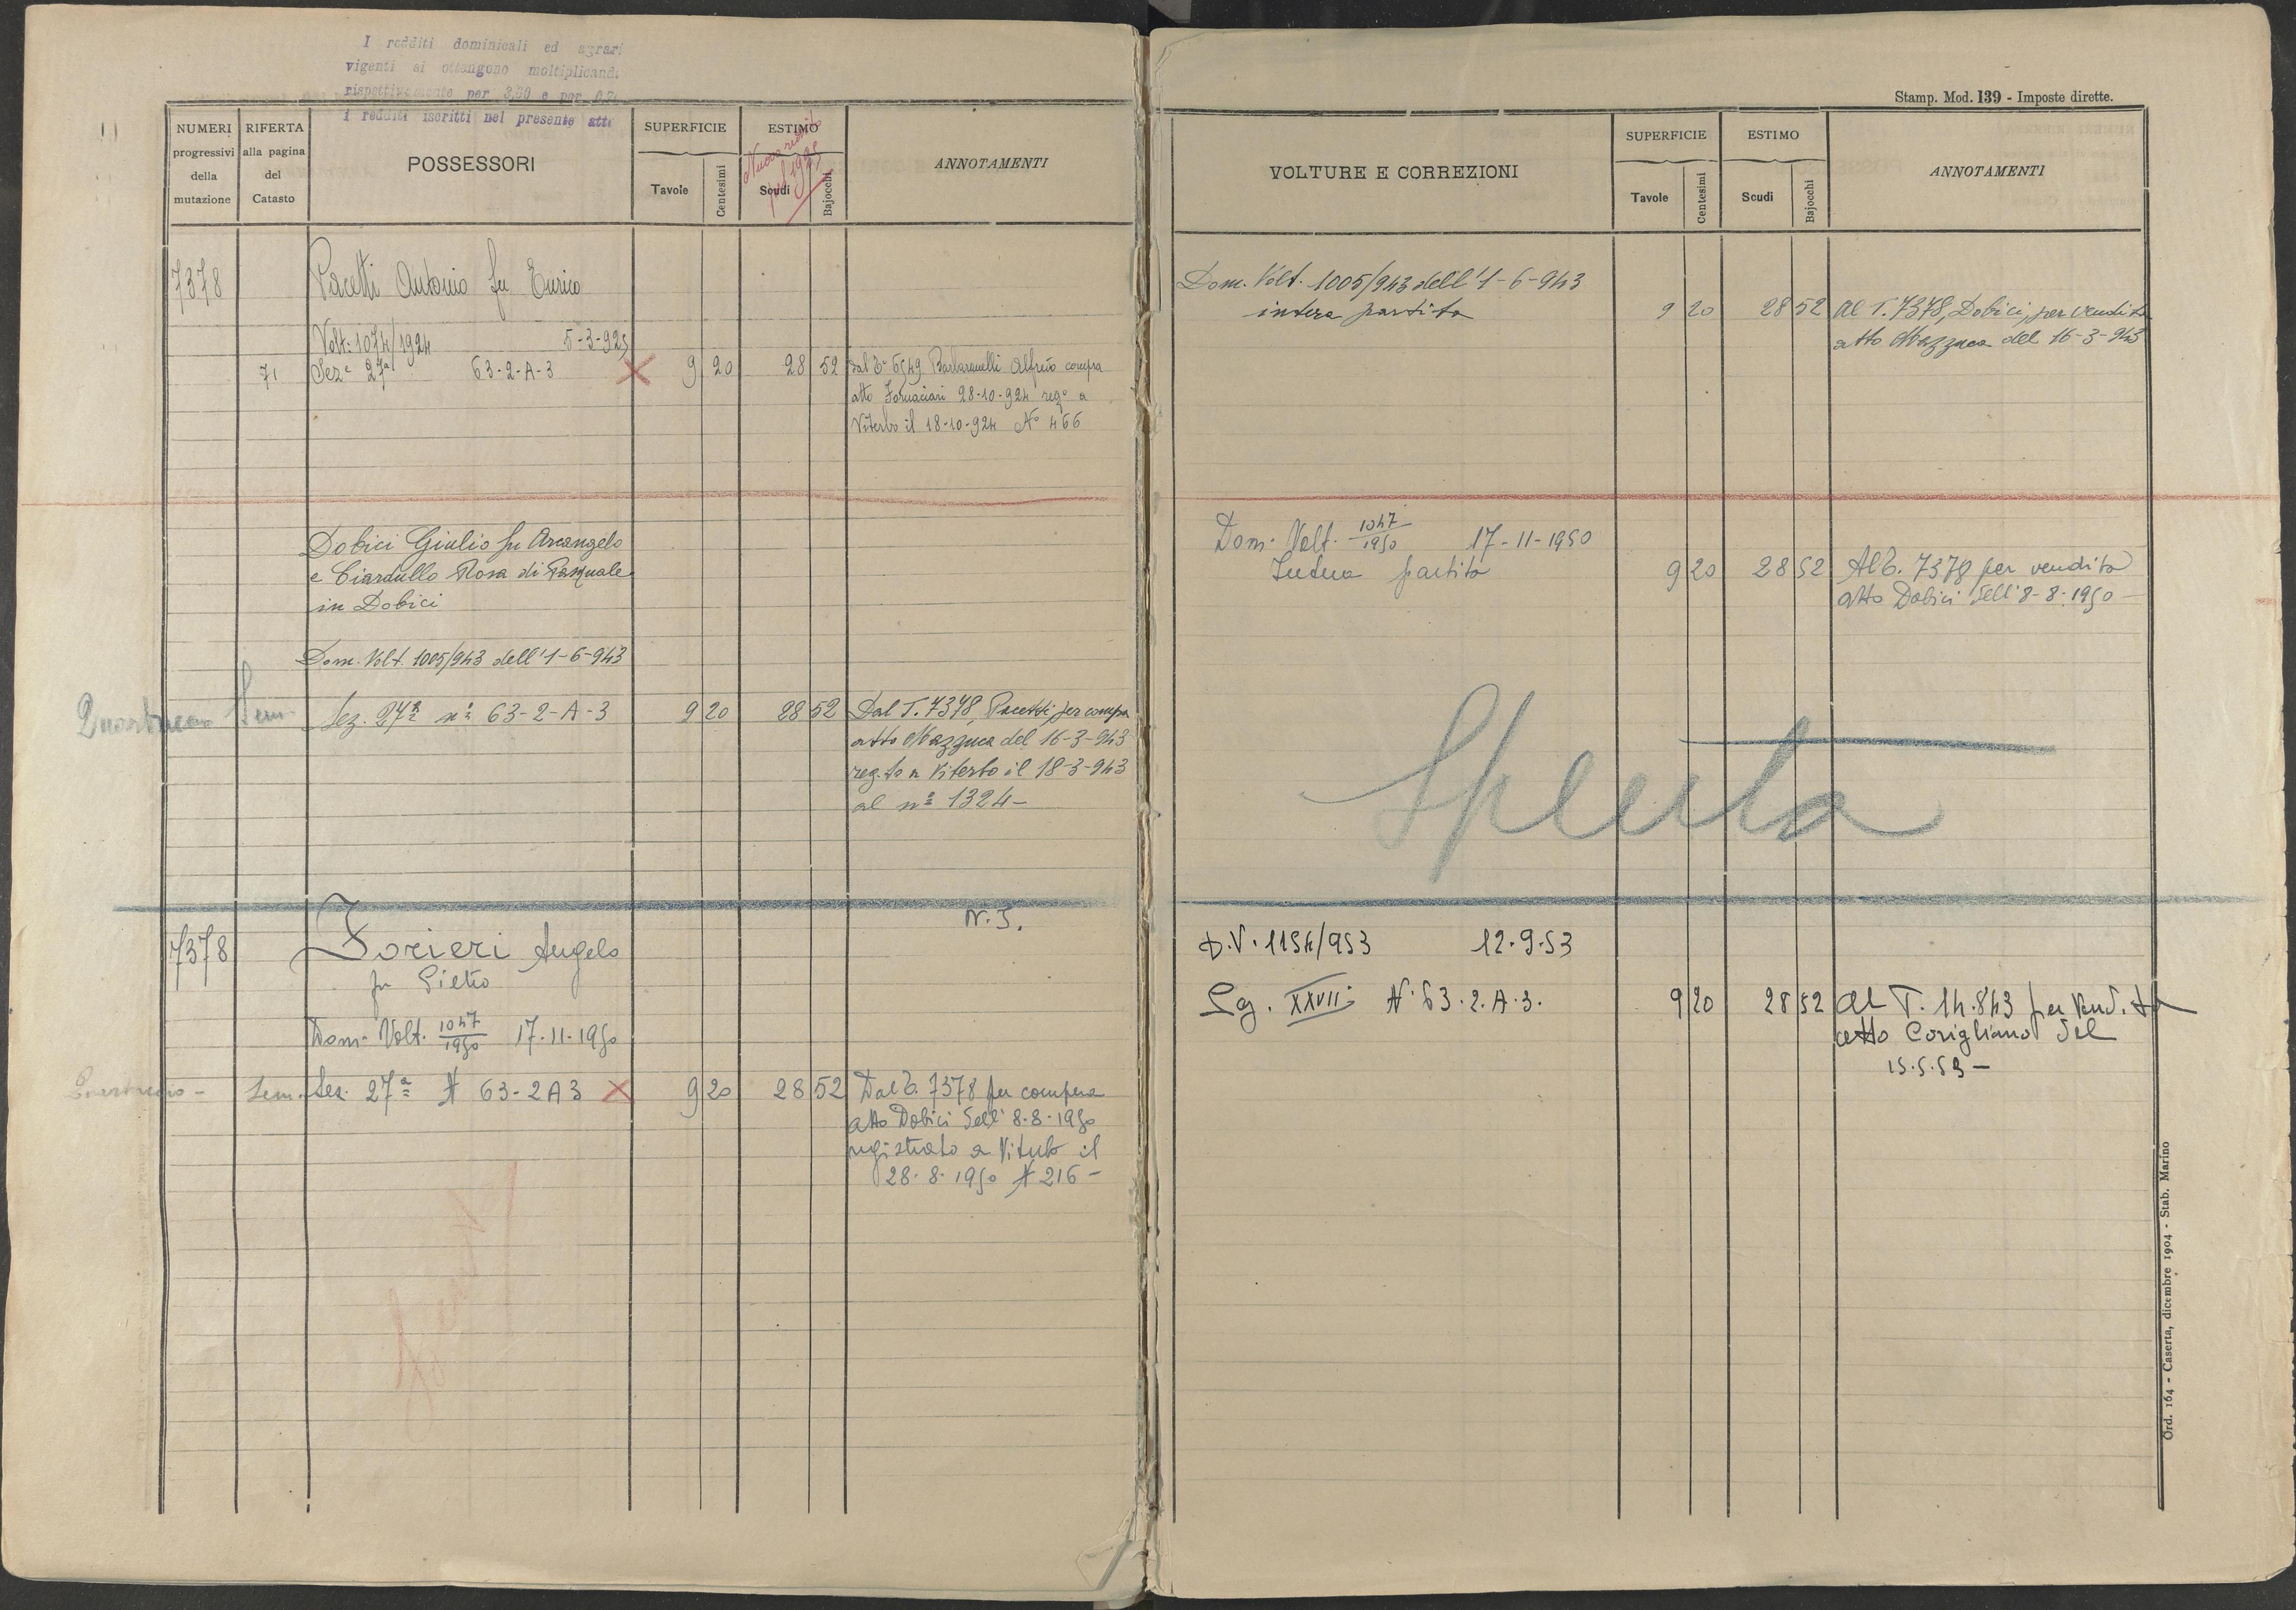 I redditi dominicali ed agrari
vigenti si ottengono moltiplicand.
rispettivamente per 3,30 e per
i redditi iscritti nel presente atto
NUMERI progressivi della mutazione
RIFERTA alla pagina del Catasto
POSSESSORI
SUPERFICIE
Tavole
Centesimi
ESTIMO
Scudi
Bajocchi
ANNOTAMENTI
7378
Pacetti Antonio fu Enrico
Volt. 1074/1924 5-3-925
71 Sez.e 27a 63-2-A-3 X 9 20 28 52 Dal T. 6549 Barbaranelli Alfredo compra
atto Fornaciari 28-10-924 rego a
Viterbo il 18-10-924 No 466
Dobici Giulio fu Arcangelo
e Ciardullo Rosa di Pasquale
in Dobici
Dom. Volt. 1005/943 dell'1-6-943
Quartuccio Sem. Sez. 27ª nº 63-2-A-3 9 20 28 52 Dal T. 7378, Pacetti, per compra
atto Mazzuca del 16-3-943
reg.to a Viterbo il 18-3-943
al nº 1324-
N. 3.
7378 Forieri Angelo
fu Pietro
Dom. Volt. 1047/1950 17-11-1950
Quartuccio - Sem. Sez. 27ª N 63-2A3 X 9 20 28 52 Dal T. 7378 per compera
atto Dobici dell' 8-8-1950
registrato a Viterbo il
28-8-1950 N 216-
Stamp. Mod. 139 - Imposte dirette.
VOLTURE E CORREZIONI
SUPERFICIE
Tavole
Centesimi
ESTIMO
Scudi
Bajocchi
ANNOTAMENTI
Dom. Volt. 1005/943 dell'1-6-943
intera partita 9 20 28 52 Al T. 7378, Dobici, per vendita
atto Mazzuca del 16-3-943
Dom. Volt. 1047/1950 17-11-1950
Intera partita 9 20 28 52 Al T. 7378 per vendita
atto Dobici dell' 8-8-1950-
Spenta
D.V. 1154/953 12.9.53
Sez. XXVII N. 63.2.A.3. 9 20 28 52 Al T. 14.843 per vend.ta
atto Corigliano del
15.5.53-
Ord. 164 - Caserta, dicembre 1904 - Stab. Marino